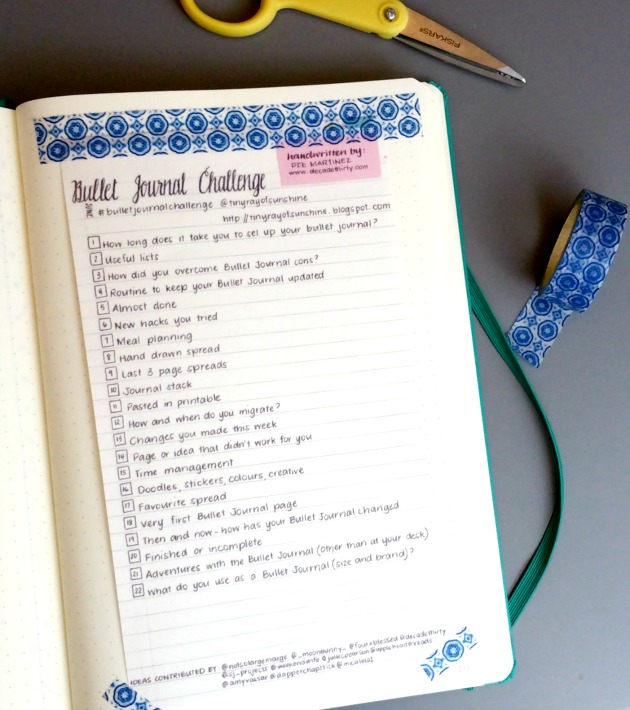 FISKARS®
handwritten by:
DEE MARTINEZ
www.decadethirty.com
Bullet Journal Challenge
JUNE
#bulletjournalchallenge @tinyrayofsunshine
http://tinyrayofsunshine.blogspot.com
1 How long does it take you to set up your bullet journal?
2 Useful lists
3 How did you overcome Bullet Journal cons?
4 Routine to keep your Bullet Journal updated
5 Almost done
6 New hacks you tried
7 Meal planning
8 Hand drawn spread
9 Last 3 page spreads
10 Journal stack
11 Pasted in printable
12 How and when do you migrate?
13 Changes you made this week
14 Page or idea that didn't work for you
15 Time management
16 Doodles, stickers, colours, creative
17 Favourite spread
18 Very first Bullet Journal page
19 Then and now - how has your Bullet Journal changed
20 Finished or incomplete
21 Adventures with the Bullet Journal (other than at your desk)
22 What do you use as a Bullet Journal (size and brand)?
IDEAS CONTRIBUTED BY @notsolargemarge @_moonbunny_ @fourxblessed @decadethirty
@sj_projects
@amyvassar @dapperchapstick